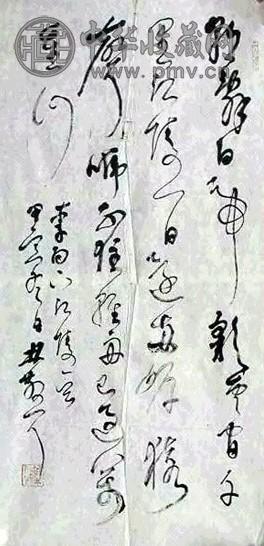 中华收藏网
www.pmv.cn
朝辞白帝彩云间千
里江陵一日还两岸猿
声啼不住轻舟已过万
重山
李白下江陵一首
甲寅冬日